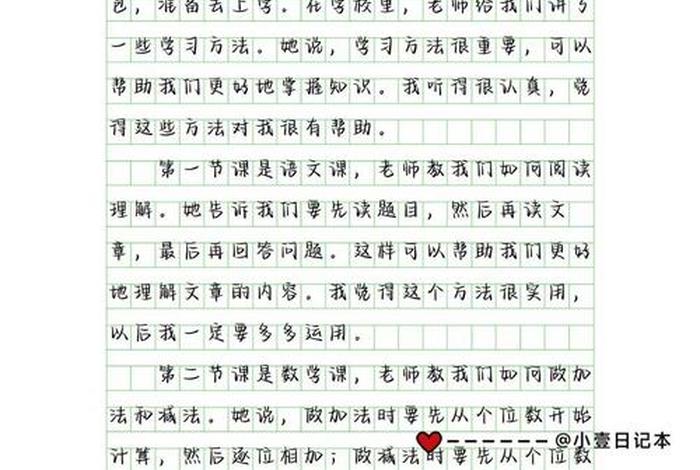 包，准备去上学。在学校里，老师给我们讲了
一些学习方法。她说，学习方法很重要，可以
帮助我们更好地掌握知识。我听得很认真，觉
得这些方法对我很有帮助。
第一节课是语文课，老师教我们如何阅读
理解。她告诉我们要先读题目，然后再读文
章，最后再回答问题。这样可以帮助我们更好
地理解文章的内容。我觉得这个方法很实用，
以后我一定要多多运用。
第二节课是数学课，老师教我们如何做加
法和减法。她说，做加法时要先从个位数开始
计算，然后逐位相加；做减法时要先从个位数
@小壹日记本